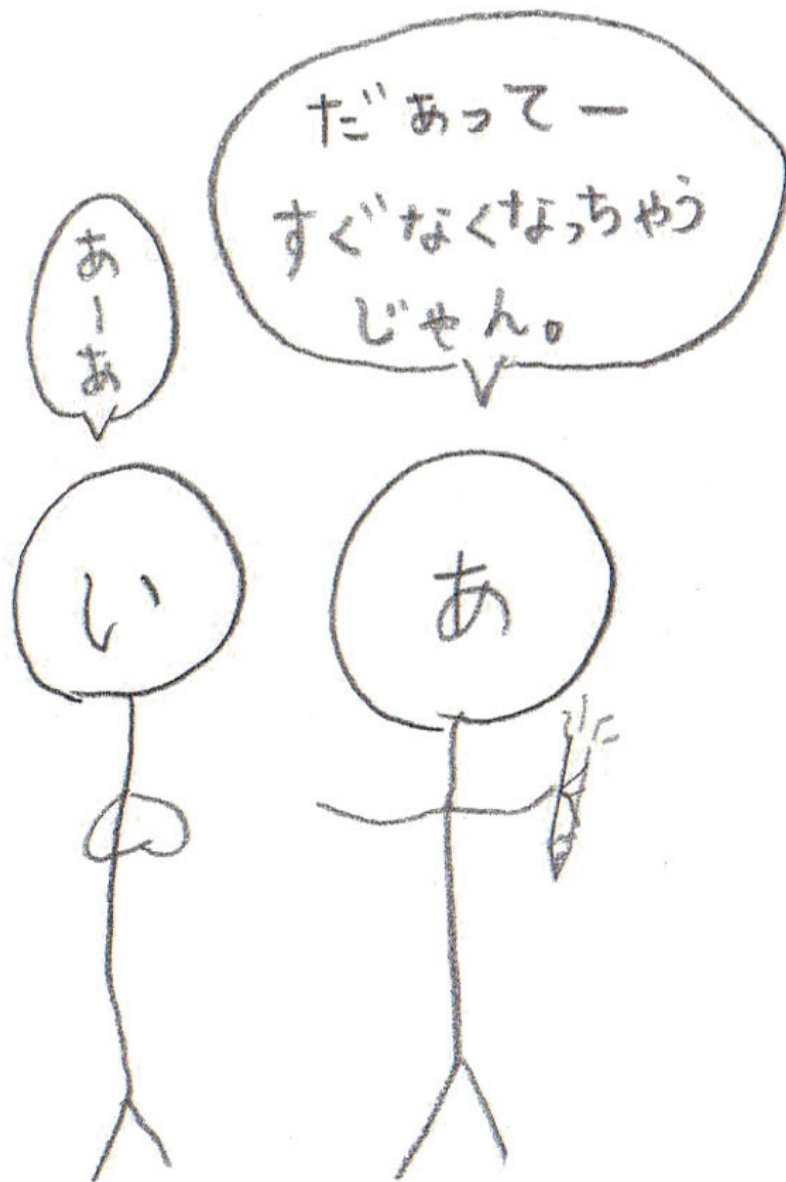 だあってー
すぐなくなっちゃう
じゃん。
あーあ
あ
い